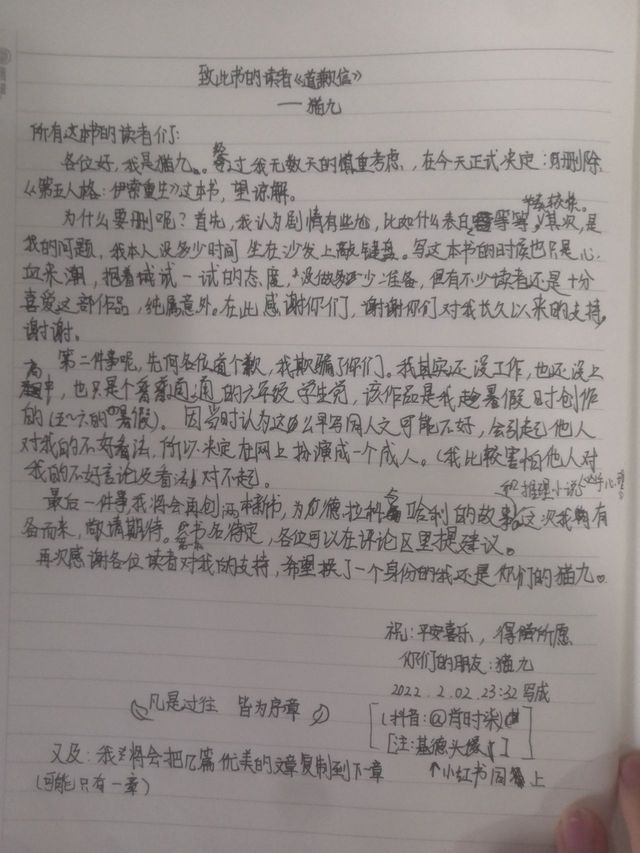 致此书的读者《道歉信》
——猫九
所有这本书的读者们：
各位好，我是猫九。经过我无数天的慎重考虑，在今天正式决定：删除
《第五人格：伊索重生》这本书，望谅解。
为什么要删呢？首先，我认为剧情有些尬，比如什么表白等等。其次，是
我的问题，我本人没多少时间坐在沙发上敲键盘。写这本书的时候也只是心
血来潮，抱着试一试的态度，没做多少准备，但有不少读者还是十分
喜爱这部作品，纯属意外。在此感谢你们，谢谢你们对我长久以来的支持。
谢谢。
第二件事呢，先向各位道个歉，我欺骗了你们。我其实还没工作，也还没上
高中，也只是个普普通通的六年级学生党，该作品是我趁暑假时创作
的（五~六的暑假）。因当时认为这么早写同人文可能不好，会引起他人
对我的不好看法，所以决定在网上扮演成一个成人。（我比较害怕他人对
我的不好言论及看法）对不起。
和推理小说
最后一件事我将会再创两本新书，为德拉科与哈利的故事，这次我有
备而来，敬请期待。书名待定，各位可以在评论区里提建议。
再次感谢各位读者对我的支持，希望换了一个身份的我还是你们的猫九。
祝：平安喜乐，得偿所愿
你们的朋友：猫九
2022.2.02.23:32 写成
凡是过往 皆为序章
[抖音：@肖时柒]
[注：基德头像]
↑小红书同号上
又及：我将会把几篇优美的文章复制到下一章
（可能只有一章）